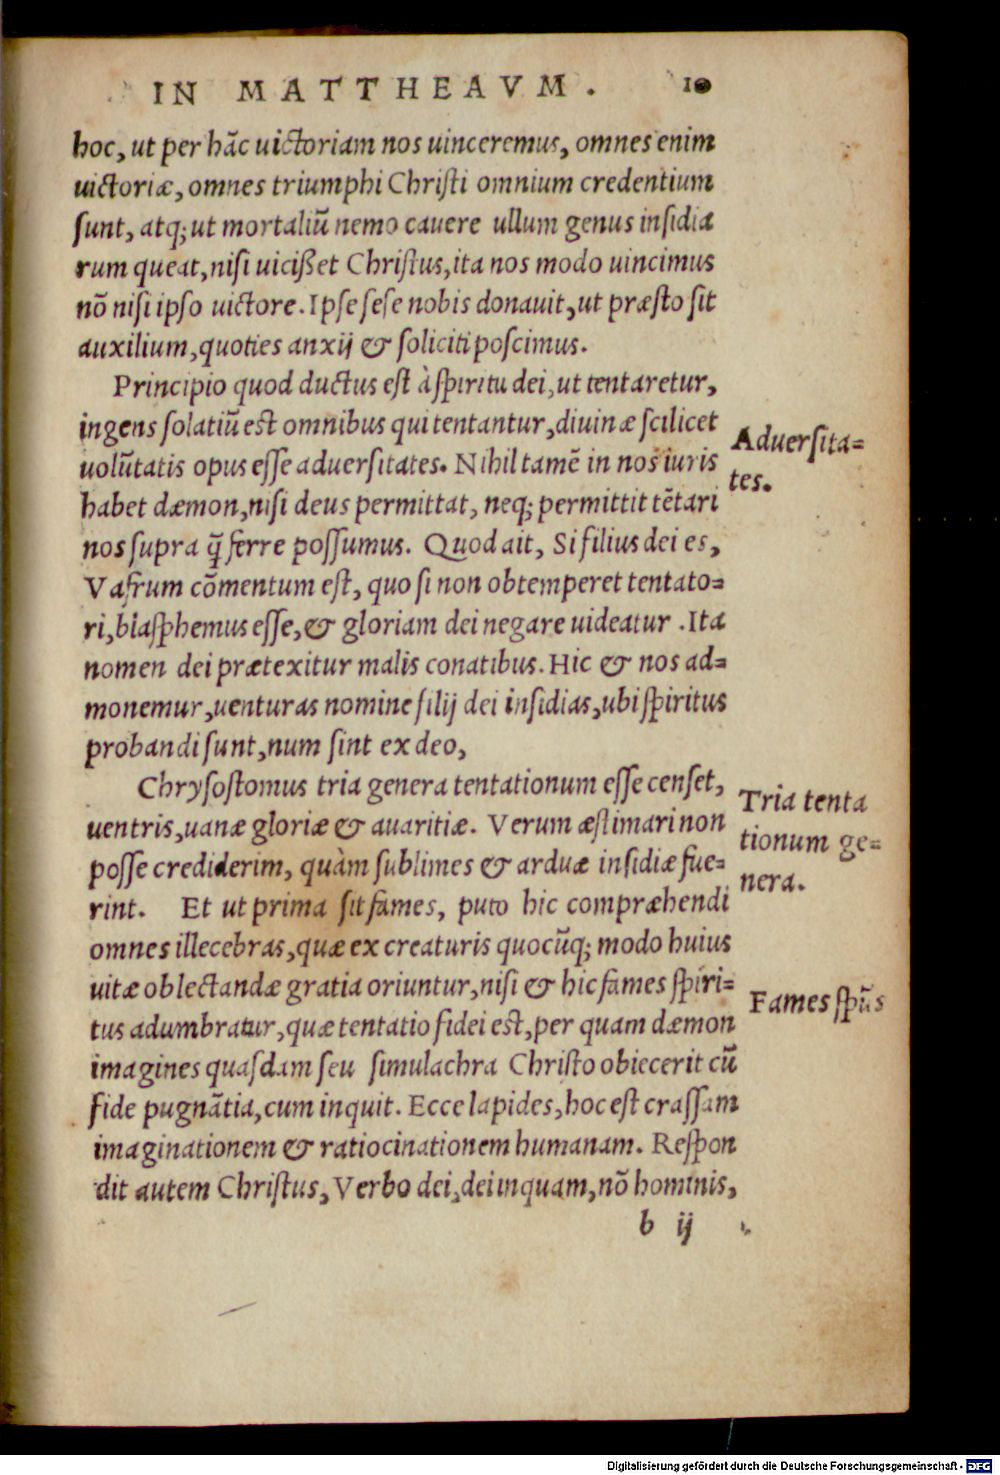 IN MATTHEAVM. 10
hoc, ut per hãc uictoriam nos uinceremus, omnes enim
uictoriæ, omnes triumphi Christi omnium credentium
sunt, atq; ut mortaliũ nemo cauere ullum genus insidia
rum queat, nisi uicißet Christus, ita nos modo uincimus
nõ nisi ipso uictore. Ipse sese nobis donauit, ut præsto sit
auxilium, quoties anxij & soliciti poscimus.
Principio quod ductus est à spiritu dei, ut tentaretur,
ingens solatiũ est omnibus qui tentantur, diuinæ scilicet
uolũtatis opus esse aduersitates. Nihil tamẽ in nos iuris
habet dæmon, nisi deus permittat, neq; permittit tẽtari
nos supra q̃ ferre possumus. Quod ait, Si filius dei es,
Vafrum cõmentum est, quo si non obtemperet tentato=
ri, blasphemus esse, & gloriam dei negare uideatur. Ita
nomen dei prætexitur malis conatibus. Hic & nos ad=
monemur, uenturas nomine filij dei insidias, ubi spiritus
probandi sunt, num sint ex deo,
Chrysostomus tria genera tentationum esse censet,
uentris, uanæ gloriæ & auaritiæ. Verum æstimari non
posse crediderim, quàm sublimes & arduæ insidiæ fue=
rint. Et ut prima sit fames, puto hic compræhendi
omnes illecebras, quæ ex creaturis quocũq; modo huius
uitæ oblectandæ gratia oriuntur, nisi & hic fames spiri=
tus adumbratur, quæ tentatio fidei est, per quam dæmon
imagines quasdam seu simulachra Christo obiecerit cũ
fide pugnãtia, cum inquit. Ecce lapides, hoc est crassam
imaginationem & ratiocinationem humanam. Respon
dit autem Christus, Verbo dei, dei inquam, nõ hominis,
b ij
Aduersita=
tes.
Tria tenta
tionum ge=
nera.
Fames spũs
Digitalisierung gefördert durch die Deutsche Forschungsgemeinschaft - DFG